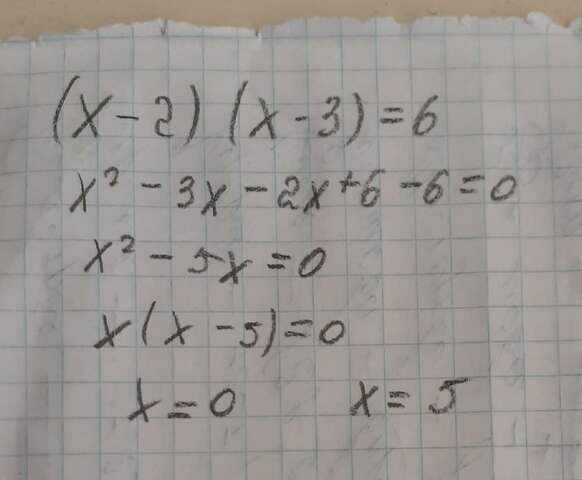 (x-2)(x-3)=6
x² - 3x - 2x + 6 - 6 = 0
x² - 5x = 0
x(x-5)=0
x = 0 x = 5